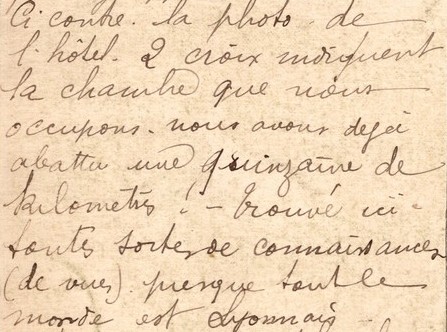 Ci contre. la photo de
l'hôtel. 2 croix indiquent
la chambre que nous
occupons. nous avons dejà
abattu une quinzaine de
kilometrès ! – trouvé ici
toutes sortes de connaissances
(de vues). presque tout le
monde est Lyonnais –